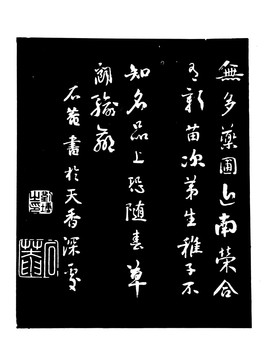 無多藥圃近南榮合
有新苗次第生稚子不
知名品上恐隨春草
鬥輸贏
石菴書於天香深處
石菴